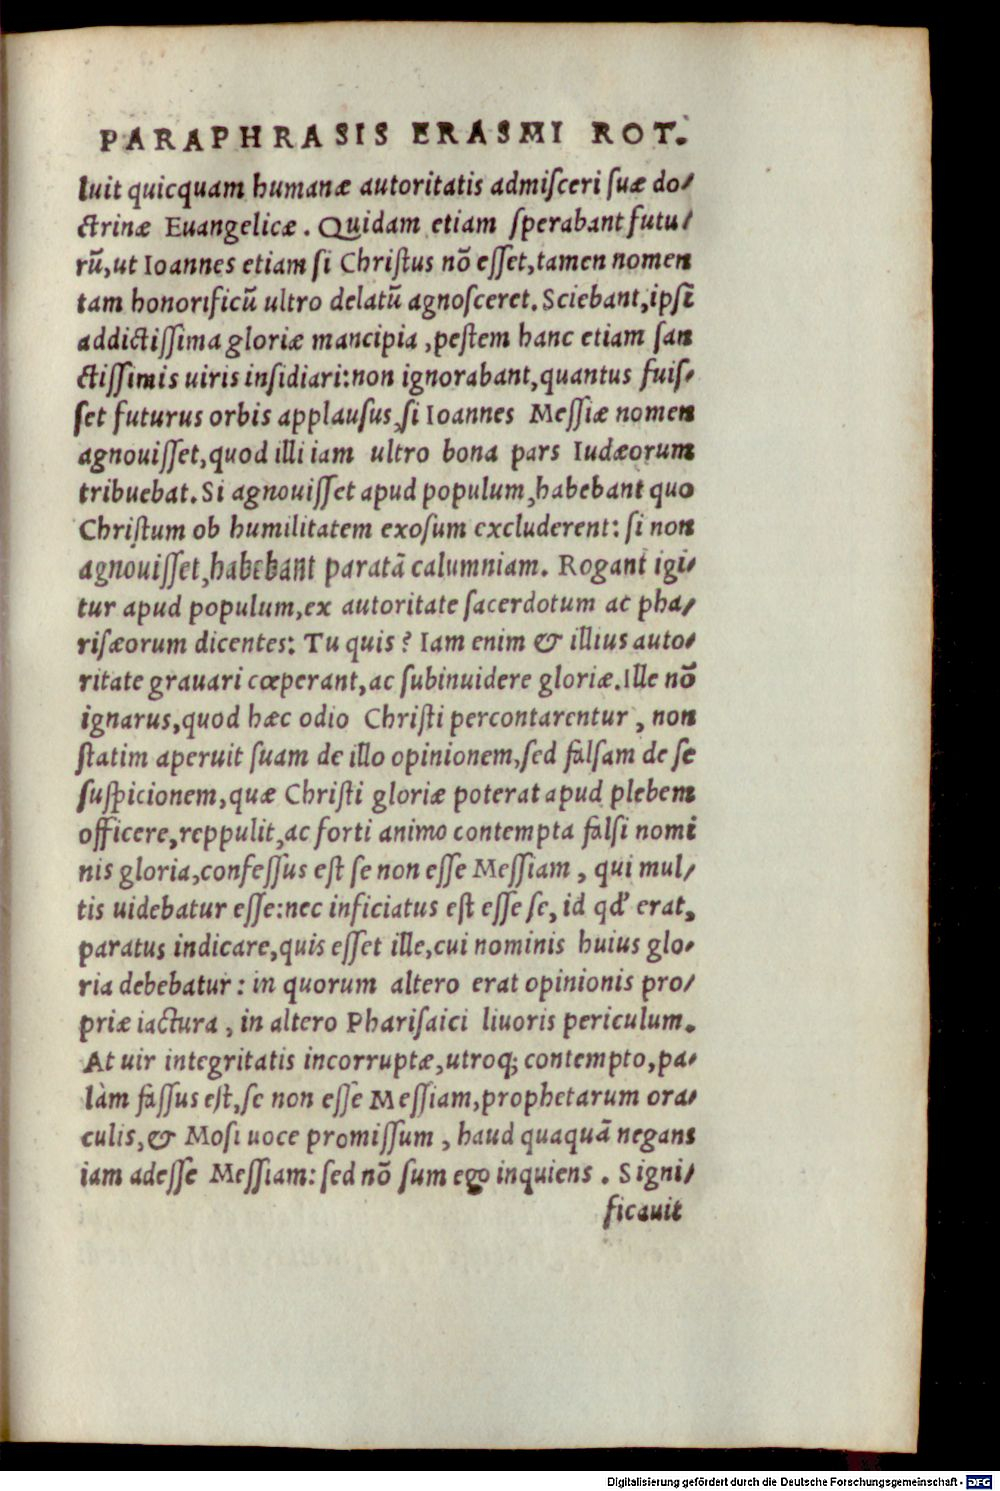 PARAPHRASIS ERASMI ROT.
luit quicquam humanæ autoritatis admisceri suæ do/
ctrinæ Euangelicæ. Quidam etiam sperabant futu/
rũ, ut Ioannes etiam si Christus nõ esset, tamen nomen
tam honorificũ ultro delatũ agnosceret. Sciebant, ipsĩ
addictissima gloriæ mancipia, pestem hanc etiam san
ctissimis uiris insidiari: non ignorabant, quantus fuis/
set futurus orbis applausus, si Ioannes Messiæ nomen
agnouisset, quod illi iam ultro bona pars Iudæorum
tribuebat. Si agnouisset apud populum, habebant quo
Christum ob humilitatem exosum excluderent: si non
agnouisset, habebant paratã calumniam. Rogant igi/
tur apud populum, ex autoritate sacerdotum ac pha/
risæorum dicentes: Tu quis? Iam enim & illius auto/
ritate grauari cœperant, ac subinuidere gloriæ. Ille nõ
ignarus, quod hæc odio Christi percontarentur, non
statim aperuit suam de illo opinionem, sed falsam de se
suspicionem, quæ Christi gloriæ poterat apud plebem
officere, reppulit, ac forti animo contempta falsi nomi
nis gloria, confessus est se non esse Messiam, qui mul/
tis uidebatur esse: nec inficiatus est esse se, id qď erat,
paratus indicare, quis esset ille, cui nominis huius glo/
ria debebatur: in quorum altero erat opinionis pro/
priæ iactura, in altero Pharisaici liuoris periculum.
At uir integritatis incorruptæ, utroq; contempto, pa/
làm fassus est, se non esse Messiam, prophetarum ora/
culis, & Mosi uoce promissum, haud quaquã negans
iam adesse Messiam: sed nõ sum ego inquiens. Signi/
ficauit
Digitalisierung gefördert durch die Deutsche Forschungsgemeinschaft - DFG